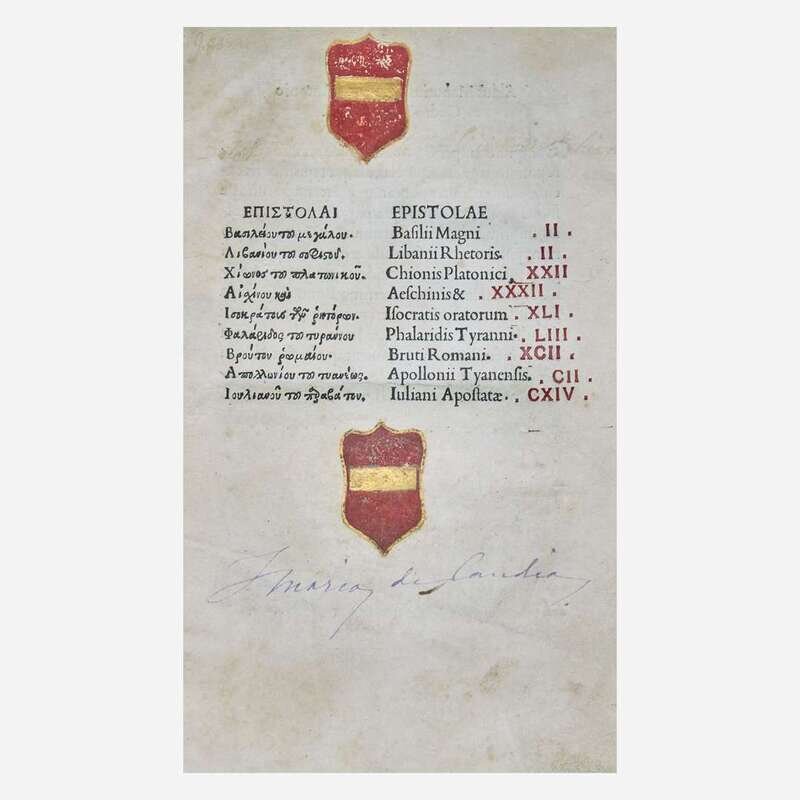 ΕΠΙΣΤΟΛΑΙ EPISTOLAE
Βασιλείου τοῦ μεγάλου. Basilii Magni . II .
Λιβανίου τοῦ σοφιστοῦ. Libanii Rhetoris. . II .
Χίωνος τοῦ πλατωνικοῦ. Chionis Platonici, XXII
Αἰσχίνου καὶ Aeschinis & . XXXII .
Ισοκράτους τῶν ῥητόρων. Isocratis oratorum . XLI .
Φαλάριδος τοῦ τυράννου Phalaridis Tyranni. . LIII .
Βρούτου ῥωμαίου. Bruti Romani. . XCII .
Απολλωνίου τοῦ τυανέως. Apollonii Tyanensis. . CII .
Ιουλιανοῦ τοῦ παραβάτου. Iuliani Apostatæ. . CXIV .
Maria di Candia